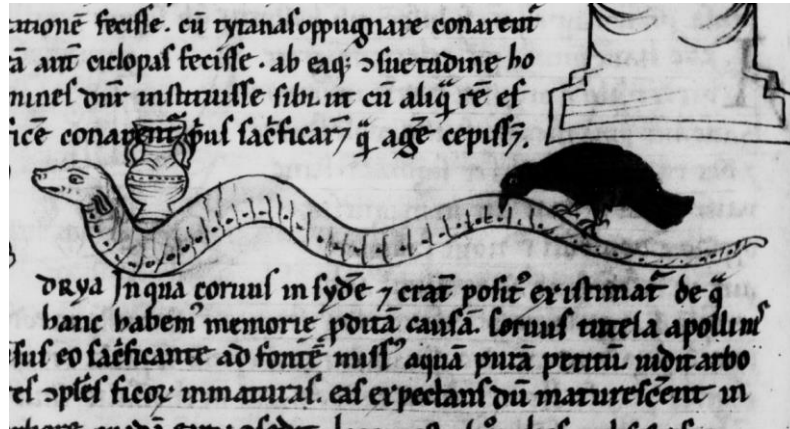 atione fecisse. cū tytanas oppugnare conarent᷑
ā aut̄ ciclopas fecisse. ab eaq; ↄsuetudine ho
mines dn̄r instituisse sibi. ut cū aliq̄ rē ef
ficē conarent᷑ p̄us sac̄ficar⁊ q̄ agē̄ cepiss⁊.
DRYA In qua coruus insydē ⁊ crat̄ posit᷒ existimat᷑ de q̄
hanc habem᷒ memorie pditā causā. Coruus tutela apollinis
sus eo sac̄ficante ad fontē miss᷒ aquā purā petitū. uidit arbo
res ↄpl̄es ficoꝝ inmaturas. eas expectans dū maturesc̄ent in